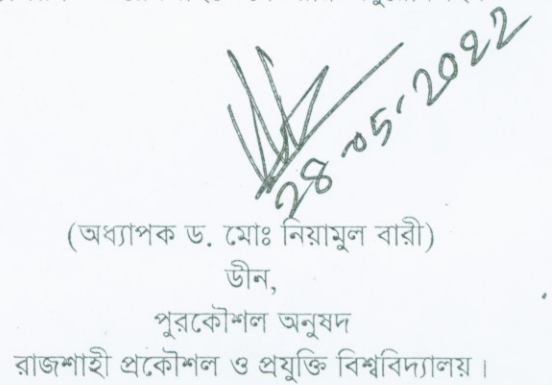 28-05-2022
(অধ্যাপক ড. মোঃ নিয়ামুল বারী)
ডীন,
পুরকৌশল অনুষদ
রাজশাহী প্রকৌশল ও প্রযুক্তি বিশ্ববিদ্যালয়।